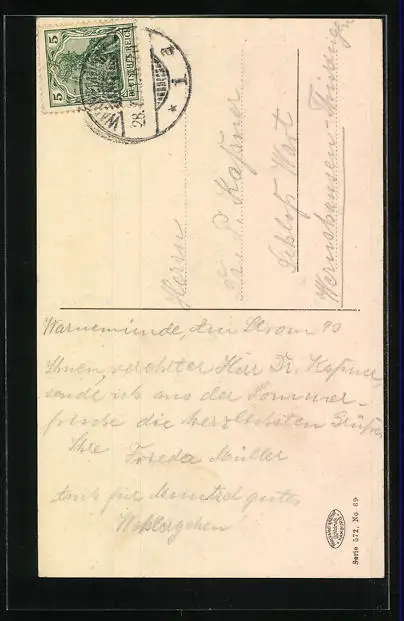 5
5
DEUTSCHES REICH
28.
* 1 a
Herrn
Dr. P. Kaßner
Schloß Wart
Wernshausen-Thüringen
Warnemünde, den Strom 90
Ihnen, verehrter Herr Dr. Kaßner,
sende ich aus der Sommer-
frische die herzlichsten Grüße
Ihre Frieda Müller
gutes
Wohlergehen
Serie 572, No. 69